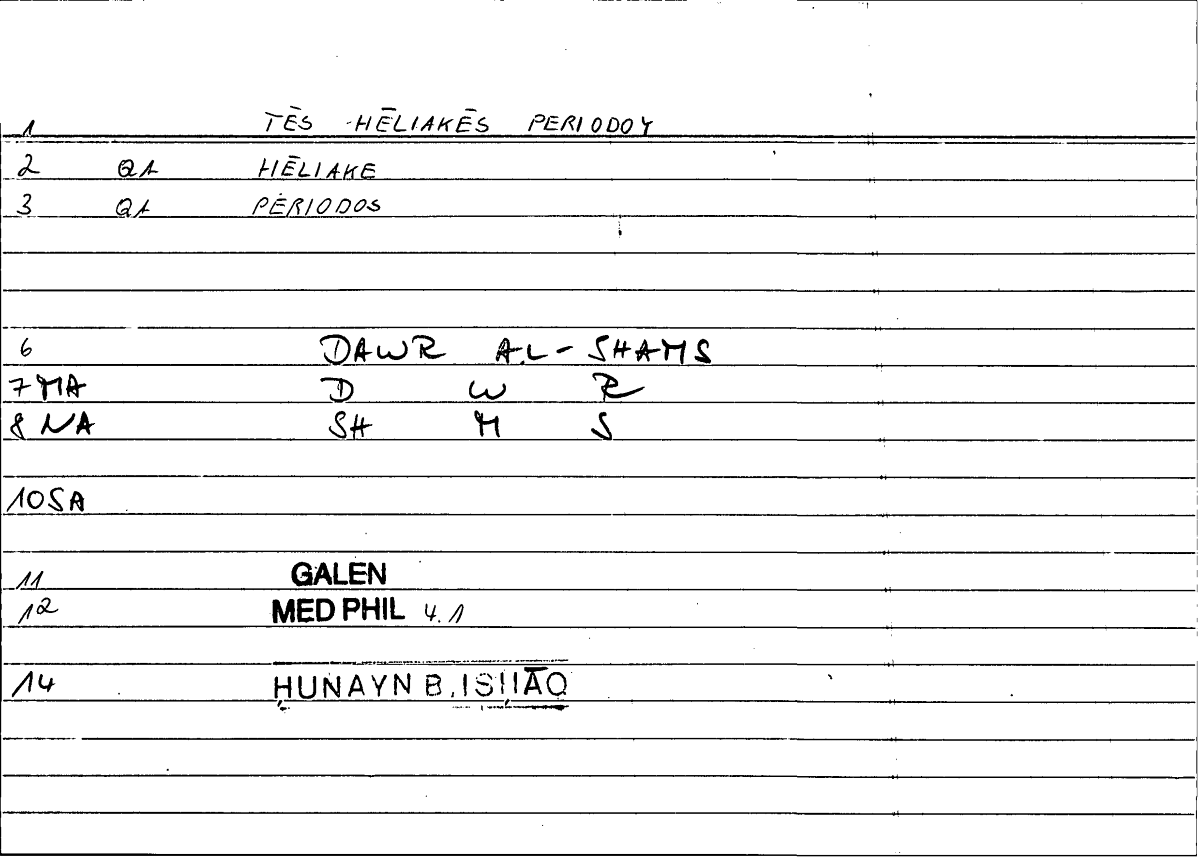 1 TĒS HĒLIAKĒS PERIODOY
2 QA HĒLIAKE
3 QA PERIODOS
6 DAWR AL-SHAMS
7 MA D W R
8 NA SH M S
10 SA
11 GALEN
12 MED PHIL 4.1
14 ḤUNAYN B. ISḤĀQ